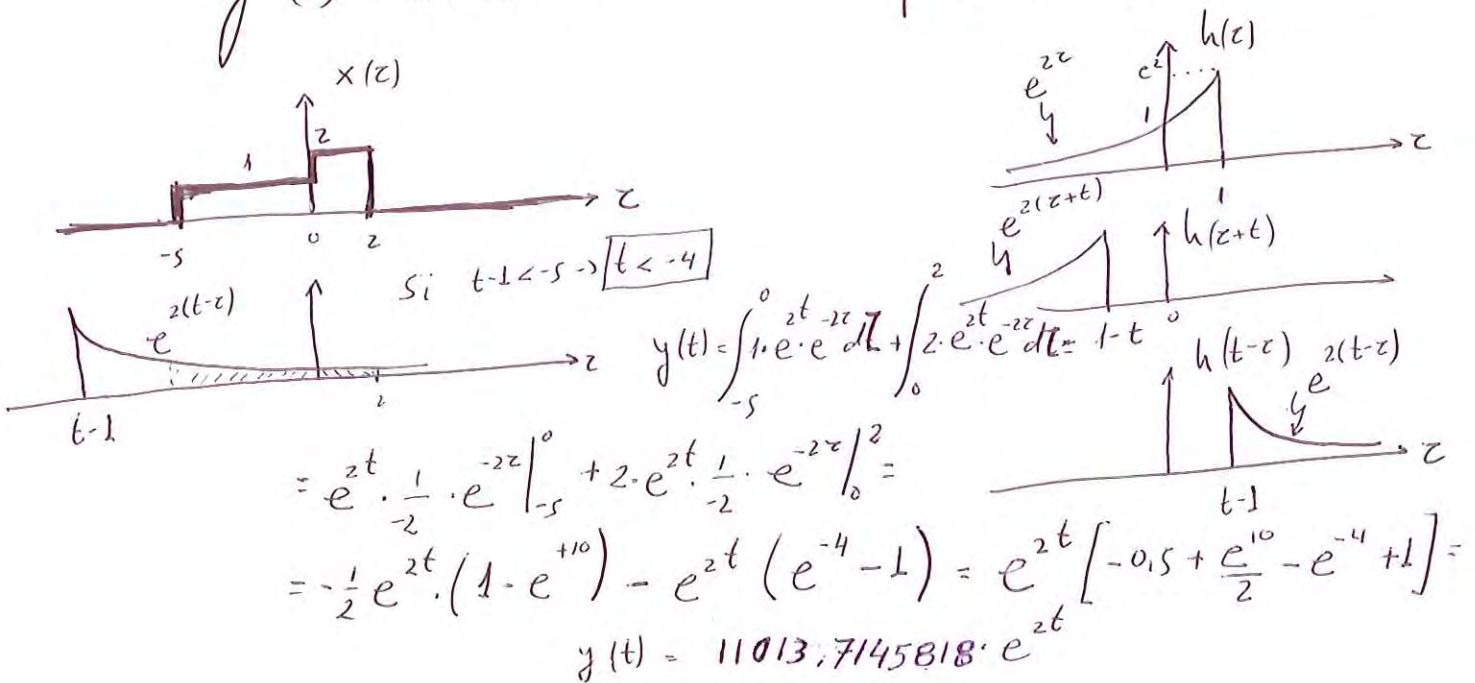 x(τ)
2
1
-5 0 2
τ
Si t-1<-5 → t<-4
e^{2(t-τ)}
τ
t-1
2
h(τ)
e^{2τ}
e²
1
τ
1
e^{2(τ+t)}
h(τ+t)
1-t 0
h(t-τ) e^{2(t-τ)}
τ
t-1
y(t) = ∫_{-5}^{0} 1·e^{2t}·e^{-2τ}dτ + ∫_{0}^{2} 2·e^{2t}·e^{-2τ}dτ =
= e^{2t}·\frac{1}{-2}·e^{-2τ}|_{-5}^{0} + 2·e^{2t}·\frac{1}{-2}·e^{-2τ}|_{0}^{2} =
= -\frac{1}{2}e^{2t}·(1-e^{+10}) - e^{2t}(e^{-4}-1) = e^{2t}[-0,5+\frac{e^{10}}{2}-e^{-4}+1] =
y(t) = 11013,7145818·e^{2t}